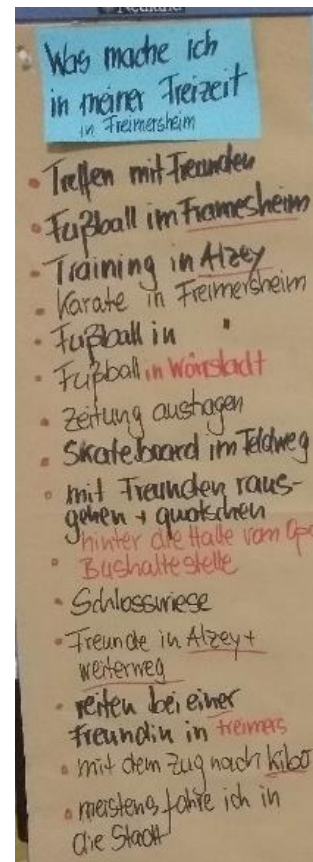 Was mache ich
in meiner Freizeit
in Freimersheim
• Treffen mit Freunden
• Fußball im Framesheim
• Training in Alzey
• Karate in Freimersheim
• Fußball in "
• Fußball in Wörrstadt
• Zeitung austragen
• Skateboard im Feldweg
• mit Freunden raus-
gehen + quatschen
hinter die Halle vom
• Bushaltestelle
• Schlosswiese
• Freunde in Alzey +
weiterweg
• reiten bei einer
Freundin in Freimers
• mit dem Zug nach Kibo
• meistens fahre ich in
die Stadt